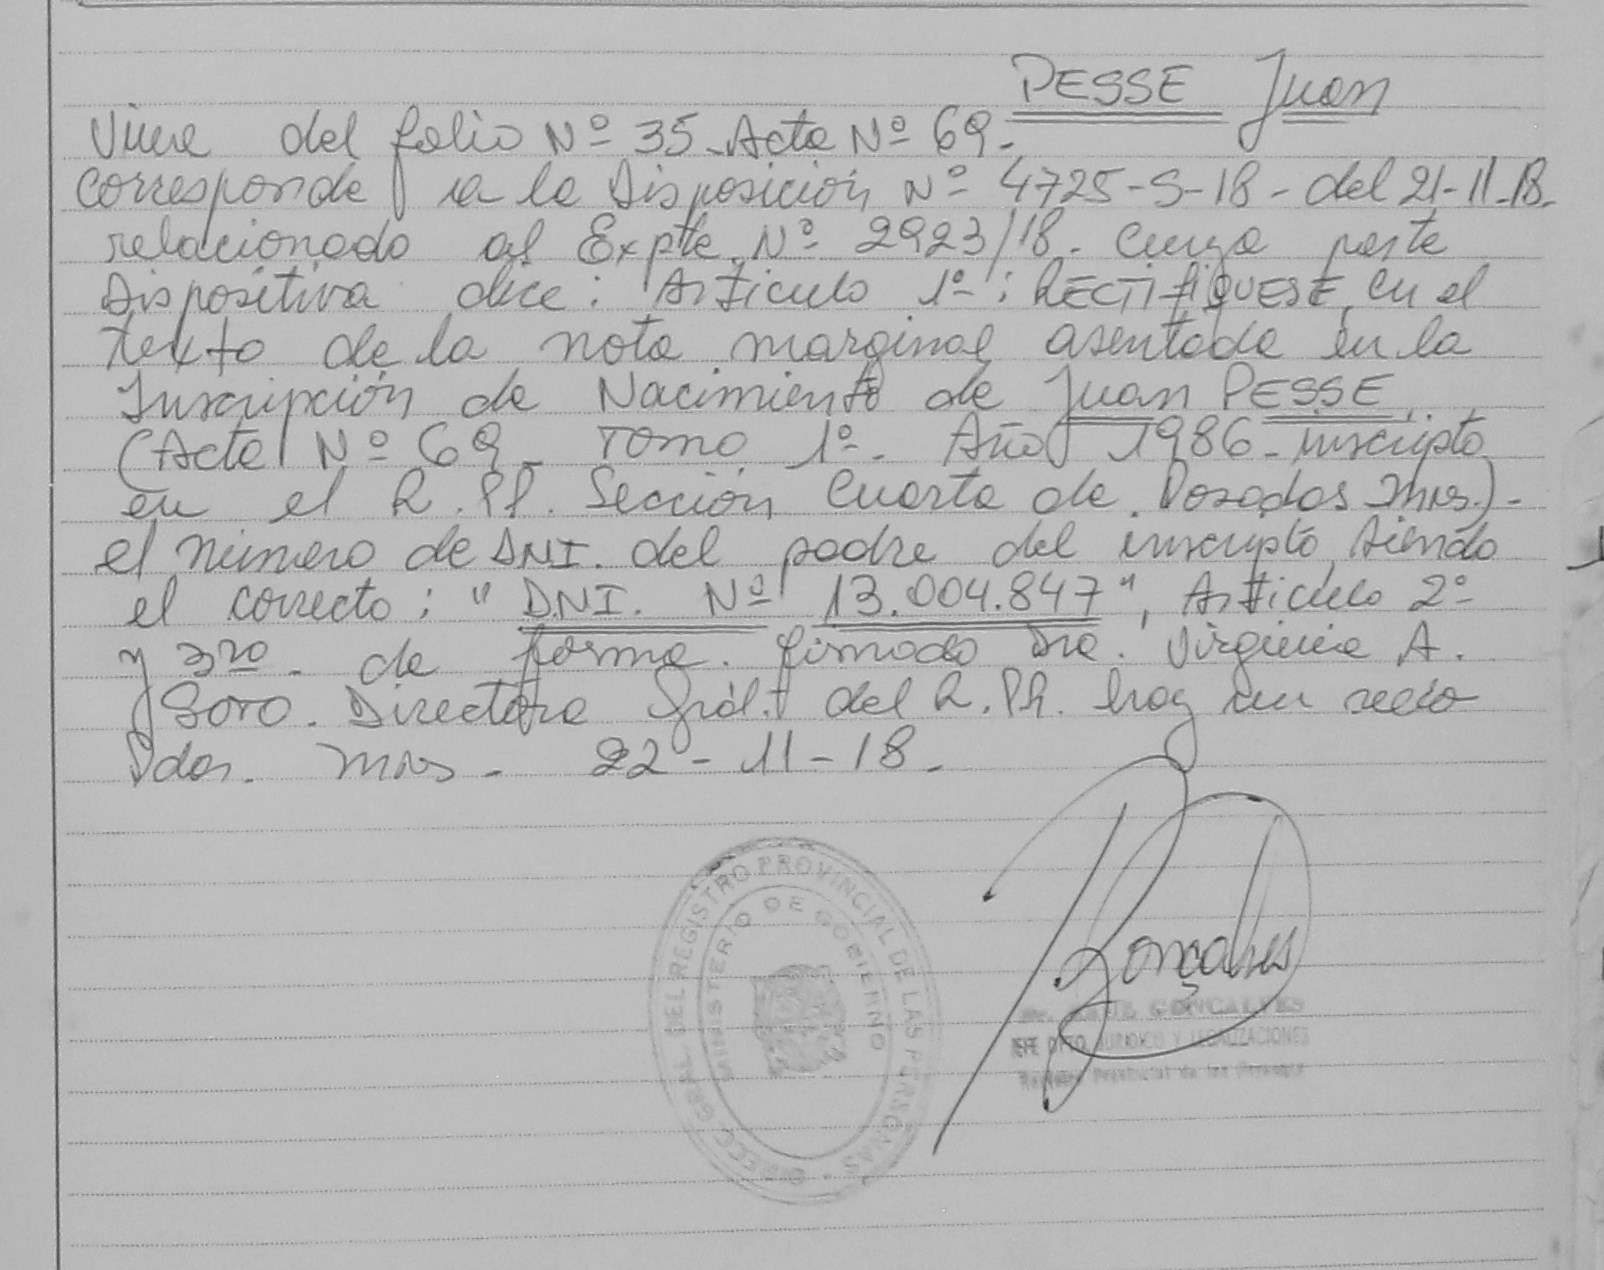 PESSE Juan
Viene del folio Nº 35 - Acta Nº 69.
Corresponde a la Disposición Nº 4725-S-18 - del 21-11-18.
relacionado al Expte. Nº 2923/18. Cuya parte
Dispositiva dice: Artículo 1º: RECTIFIQUESE, en el
texto de la nota marginal asentada en la
Inscripción de Nacimiento de Juan PESSE
(Acta Nº 69 - Tomo 1º - Año 1986 - inscripto
en el R.P.P. Sección Cuarta de Posadas Mns.) -
el número de DNI. del padre del inscripto, siendo
el correcto: "D.N.I. Nº 13.004.847", Artículo 2º
y 3ro - de forma. firmado Dra. Virginia A.
Soro. Directora Gral. del R.P.P. hoy
Pdas. Mns - 22-11-18.
DIRECC. GRAL. DEL REGISTRO PROVINCIAL DE LAS PERSONAS
MINISTERIO DE GOBIERNO
Gonçalves
Dr. RAUL GONCALVES
JEFE DPTO. JURIDICO Y LEGALIZACIONES
Registro Provincial de las Personas